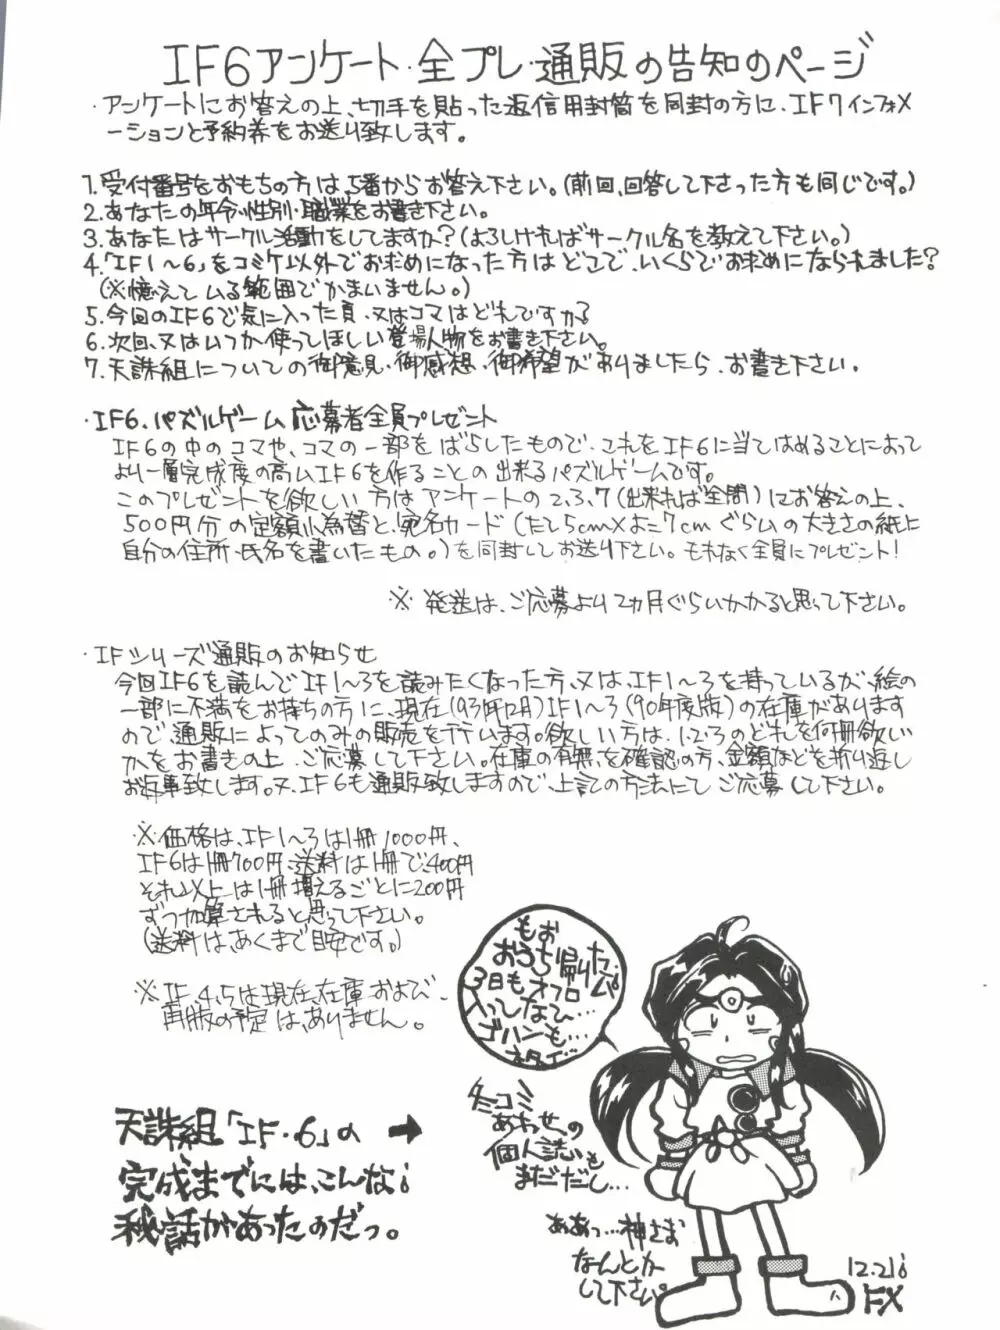 IF6アンケート・全プレ・通販の告知のページ
・アンケートにお答えの上、切手を貼った返信用封筒を同封の方に、IF7インフォメ
ーションと予約券をお送り致します。
1.受付番号をおもちの方は、5番からお答え下さい。(前回、回答して下さった方も同じです。)
2.あなたの年令・性別・職業をお書き下さい。
3.あなたはサークル活動をしてますか?(よろしければサークル名を教えて下さい。)
4.「IF1〜6」をコミケ以外でお求めになった方はどこで、いくらでお求めになられました?
(※憶えている範囲でかまいません。)
5.今回のIF6で気に入った頁、又はコマはどれですか?
6.次回、又はいつか使ってほしい登場人物をお書き下さい。
7.天誅組についての御意見・御感想・御希望がありましたら、お書き下さい。
・IF6.パズルゲーム応募者全員プレゼント
IF6の中のコマや、コマの一部をばらしたもので、これをIF6に当てはめることによって
より一層完成度の高いIF6を作ることの出来るパズルゲームです。
このプレゼントを欲しい方はアンケートの2、3、7(出来れば全問)にお答えの上、
500円分の定額小為替と、宛名カード(たて5cm×よこ7cmぐらいの大きさの紙に
自分の住所・氏名を書いたもの。)を同封してお送り下さい。もれなく全員にプレゼント!
※発送は、ご応募より2ヵ月ぐらいかかると思って下さい。
・IFシリーズ通販のお知らせ
今回IF6を読んでIF1〜3を読みたくなった方、又は、IF1〜3を持っているが、絵の
一部に不満をお持ちの方に、現在(93年12月)IF1〜3(90年度版)の在庫があります
ので、通販によってのみの販売を行います。欲しい方は、1・2・3のどれを何冊欲しい
かをお書きの上、ご応募して下さい。在庫の有無を確認の方、金額などを折り返し
お返事致します。又、IF6も通販致しますので、上記の方法にてご応募して下さい。
※価格は、IF1〜3は1冊1000円、
IF6は1冊700円、送料は1冊で、400円
それ以上は1冊増えるごとに200円
ずつ加算されると思って下さい。
(送料は、あくまで目安です。)
※IF.4、5は現在、在庫および、
再版の予定は、ありません。
もお
おうち帰りたい
3日もオフロ
入ってなひ…
ゴハンも…
冬コミ
あわせの
個人誌も
まだだし…
ああっ…神さま
なんとか
して下さい。
天誅組「IF・6」の →
完成までには、こんな
秘話があったのだっ。
12.21
FX